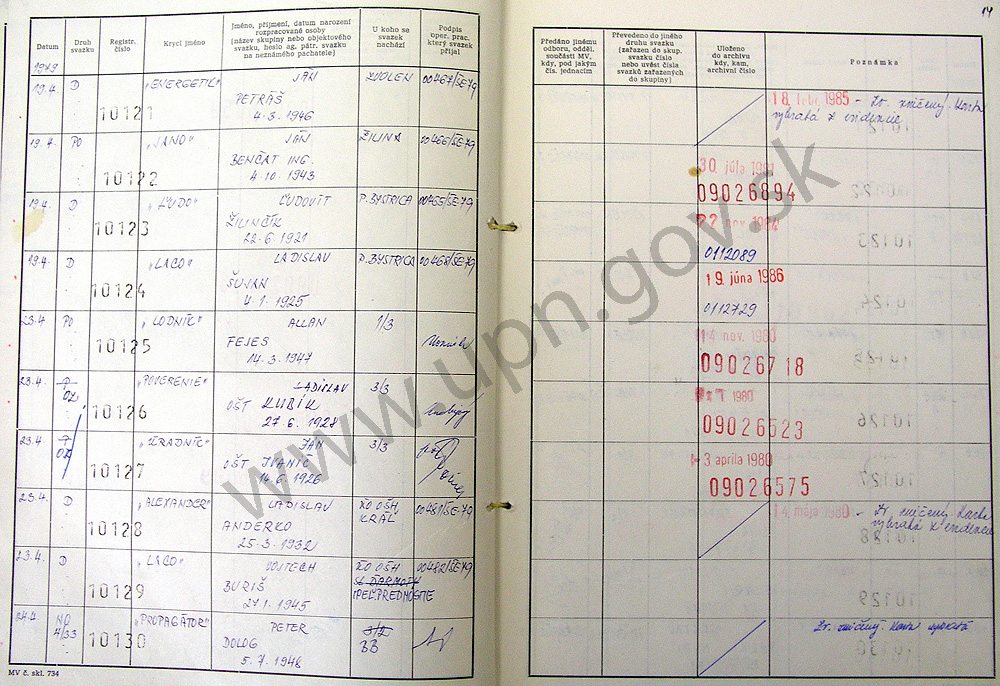 14
Datum
Druh svazku
Registr. číslo
Krycí jméno
Jméno, příjmení, datum narození rozpracované osoby (název skupiny nebo objektového svazku, heslo ag. pátr. svazku na neznámého pachatele)
U koho se svazek nachází
Podpis oper. prac. který svazek přijal
Předáno jinému odboru, odděl. součásti MV, kdy, pod jakým čís. jednacím
Převedeno do jiného druhu svazku (zařazen do skup. svazku číslo nebo uvést čísla svazků zařazených do skupiny)
Uloženo do archivu kdy, kam, archivní číslo
Poznámka
1979
19.4. D 10121 „ENERGETIK" JÁN ZVOLEN 00467/SE-79
PETRÁŠ
4.3.1946
18. febr. 1985 - Zv. zničený. Karta
vybratá z evidencie
19.4. PO 10122 „JANO" JÁN ŽILINA 00466/SE-79
BENČAT ING.
4.10.1943
30. júla 1981
09026894
19.4. D 10123 „ĽUDO" ĽUDOVÍT P. BYSTRICA 00465/SE-79
ŽILINČÍK
22.6.1921
0112089
19.4. D 10124 „LACO" LADISLAV P. BYSTRICA 00468/SE-79
ŠUJAN
4.1.1925
19. júna 1986
0112729
23.4. PO 10125 „LODNÍC" ALLAN 1/3
FEJES
14.3.1947
14 nov. 1980
09026718
23.4. OZ 10126 „POVERENIE" LADISLAV 3/3
OŠT KUBÍK
27.6.1928
1980
09026523
23.4. OZ 10127 „ZRADNÍC" JÁN 3/3
OŠT IVANIČ
14.6.1926
3 apríla 1980
09026575
23.4. D 10128 „ALEXANDER" LADISLAV KO OŠH 00481/SE-79
ANDERKO KRÁĽ
25.3.1932
14. mája 1980 - Zv. zničený Karta
vybratá z evidencie
23.4. D 10129 „LACO" VOJTECH KO OŠH 00482/SE-79
BURIŠ SL. ĎARMOTY
27.1.1945 IPEĽ. PREDMOSTIE
24.4. NO 4/33 10130 „PROPAGÁTOR" PETER 3/2
DOLOG BB
5.7.1948
Zv. zničený - Karta vybratá
MV č. skl. 734
www.upn.gov.sk